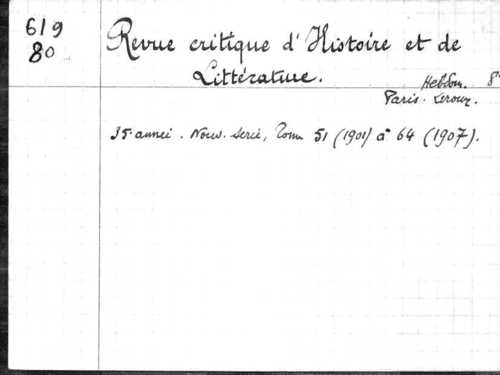 619
80
Revue critique d'Histoire et de
Littérature.
Hebdom. 8°
Paris. Leroux.
35e année. Nouv. serie, Tome 51 (1901) a 64 (1907).